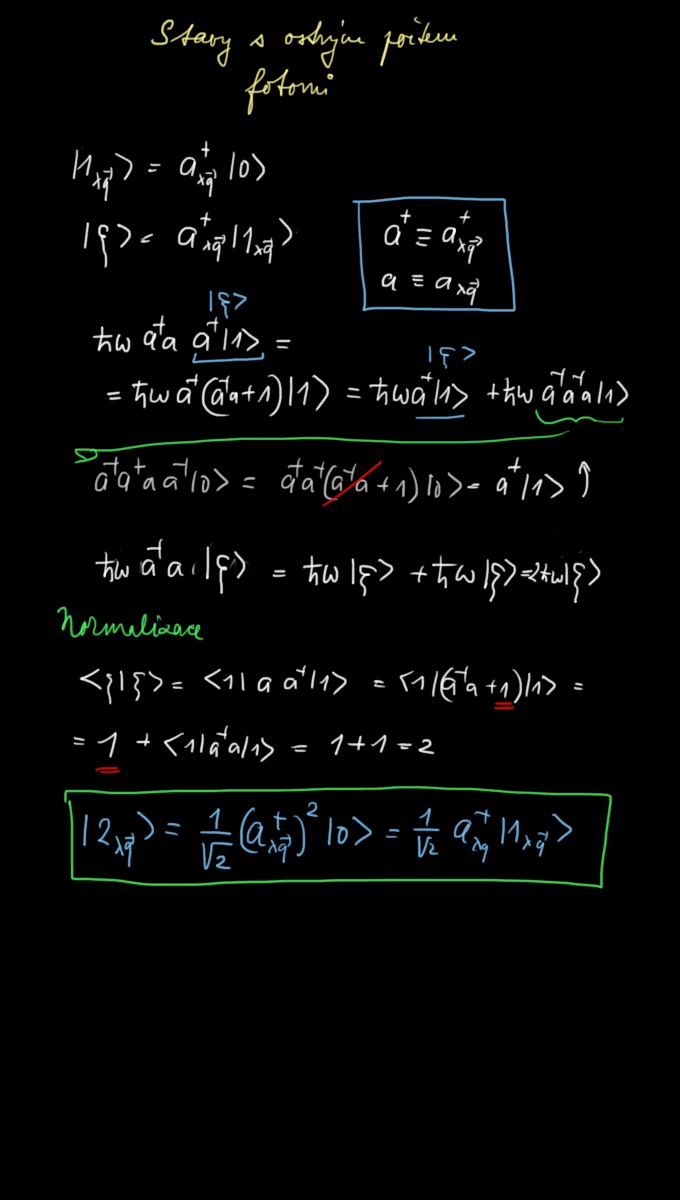 Stavy s ostrým počtem
fotonů
|1_{λq⃗}⟩ = a⁺_{λq⃗} |0⟩
|ξ⟩ = a⁺_{λq⃗} |1_{λq⃗}⟩
a⁺ ≡ a⁺_{λq⃗}
a ≡ a_{λq⃗}
|ξ⟩
ħω a⁺a a⁺|1⟩ =
|ξ⟩
= ħω a⁺(a⁺a+1)|1⟩ = ħω a⁺|1⟩ + ħω a⁺a⁺a|1⟩
a⁺a⁺a a⁺|0⟩ = a⁺a⁺(a⁺a + 1)|0⟩ = a⁺|1⟩ ↑
ħω a⁺a |ξ⟩ = ħω |ξ⟩ + ħω |ξ⟩ = 2ħω|ξ⟩
Normalizace
<ξ|ξ> = <1| a a⁺|1> = <1|(a⁺a +1)|1> =
= 1 + <1|a⁺a|1> = 1+1 = 2
|2_{λq⃗}⟩ = 1/√2 (a⁺_{λq⃗})² |0⟩ = 1/√2 a⁺_{λq⃗} |1_{λq⃗}⟩